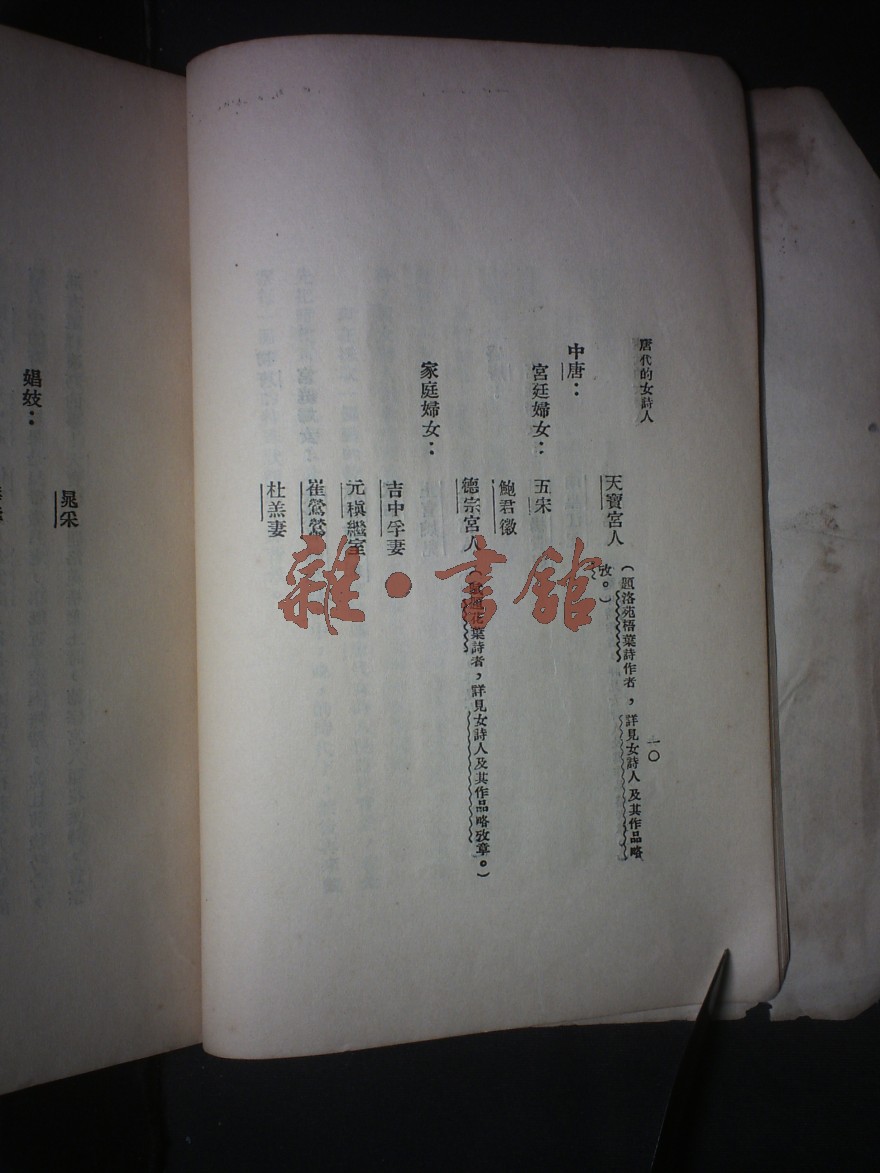 唐代的女詩人
一〇
天寶宮人
(題洛苑梧葉詩作者,詳見女詩人及其作品略
攷。)
中唐:
宮廷婦女:
五宋
鮑君徽
德宗宮人
花葉詩者,詳見女詩人及其作品略攷章。)
家庭婦女:
吉中孚妻
元稹繼室
崔鶯鶯
杜羔妻
晁采
娼妓:
雜·書館